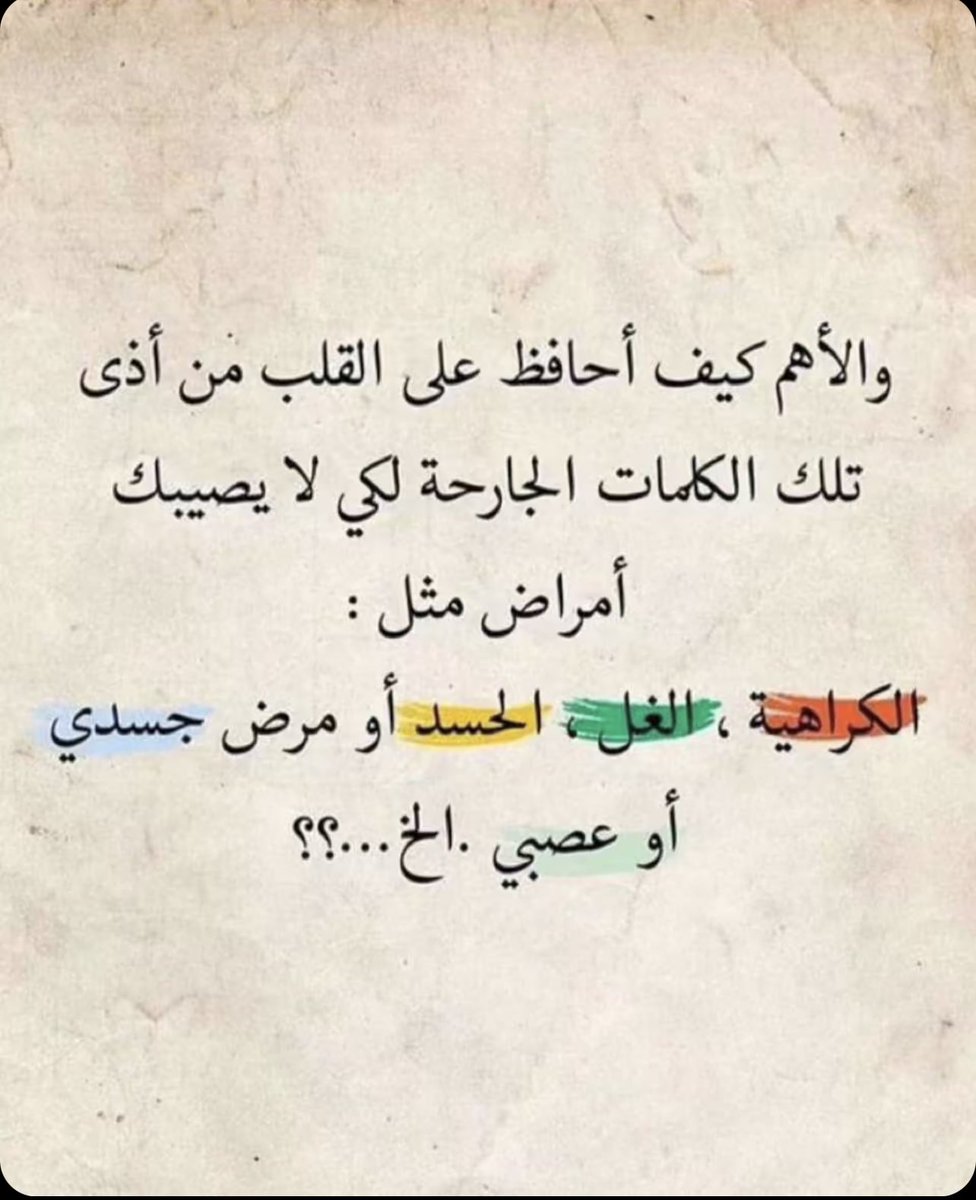 والأهم كيف أحافظ على القلب من أذى
تلك الكلمات الجارحة لكي لا يصيبك
أمراض مثل :
الكراهية ، الغل ، الحسد أو مرض جسدي
أو عصبي .الخ...؟؟